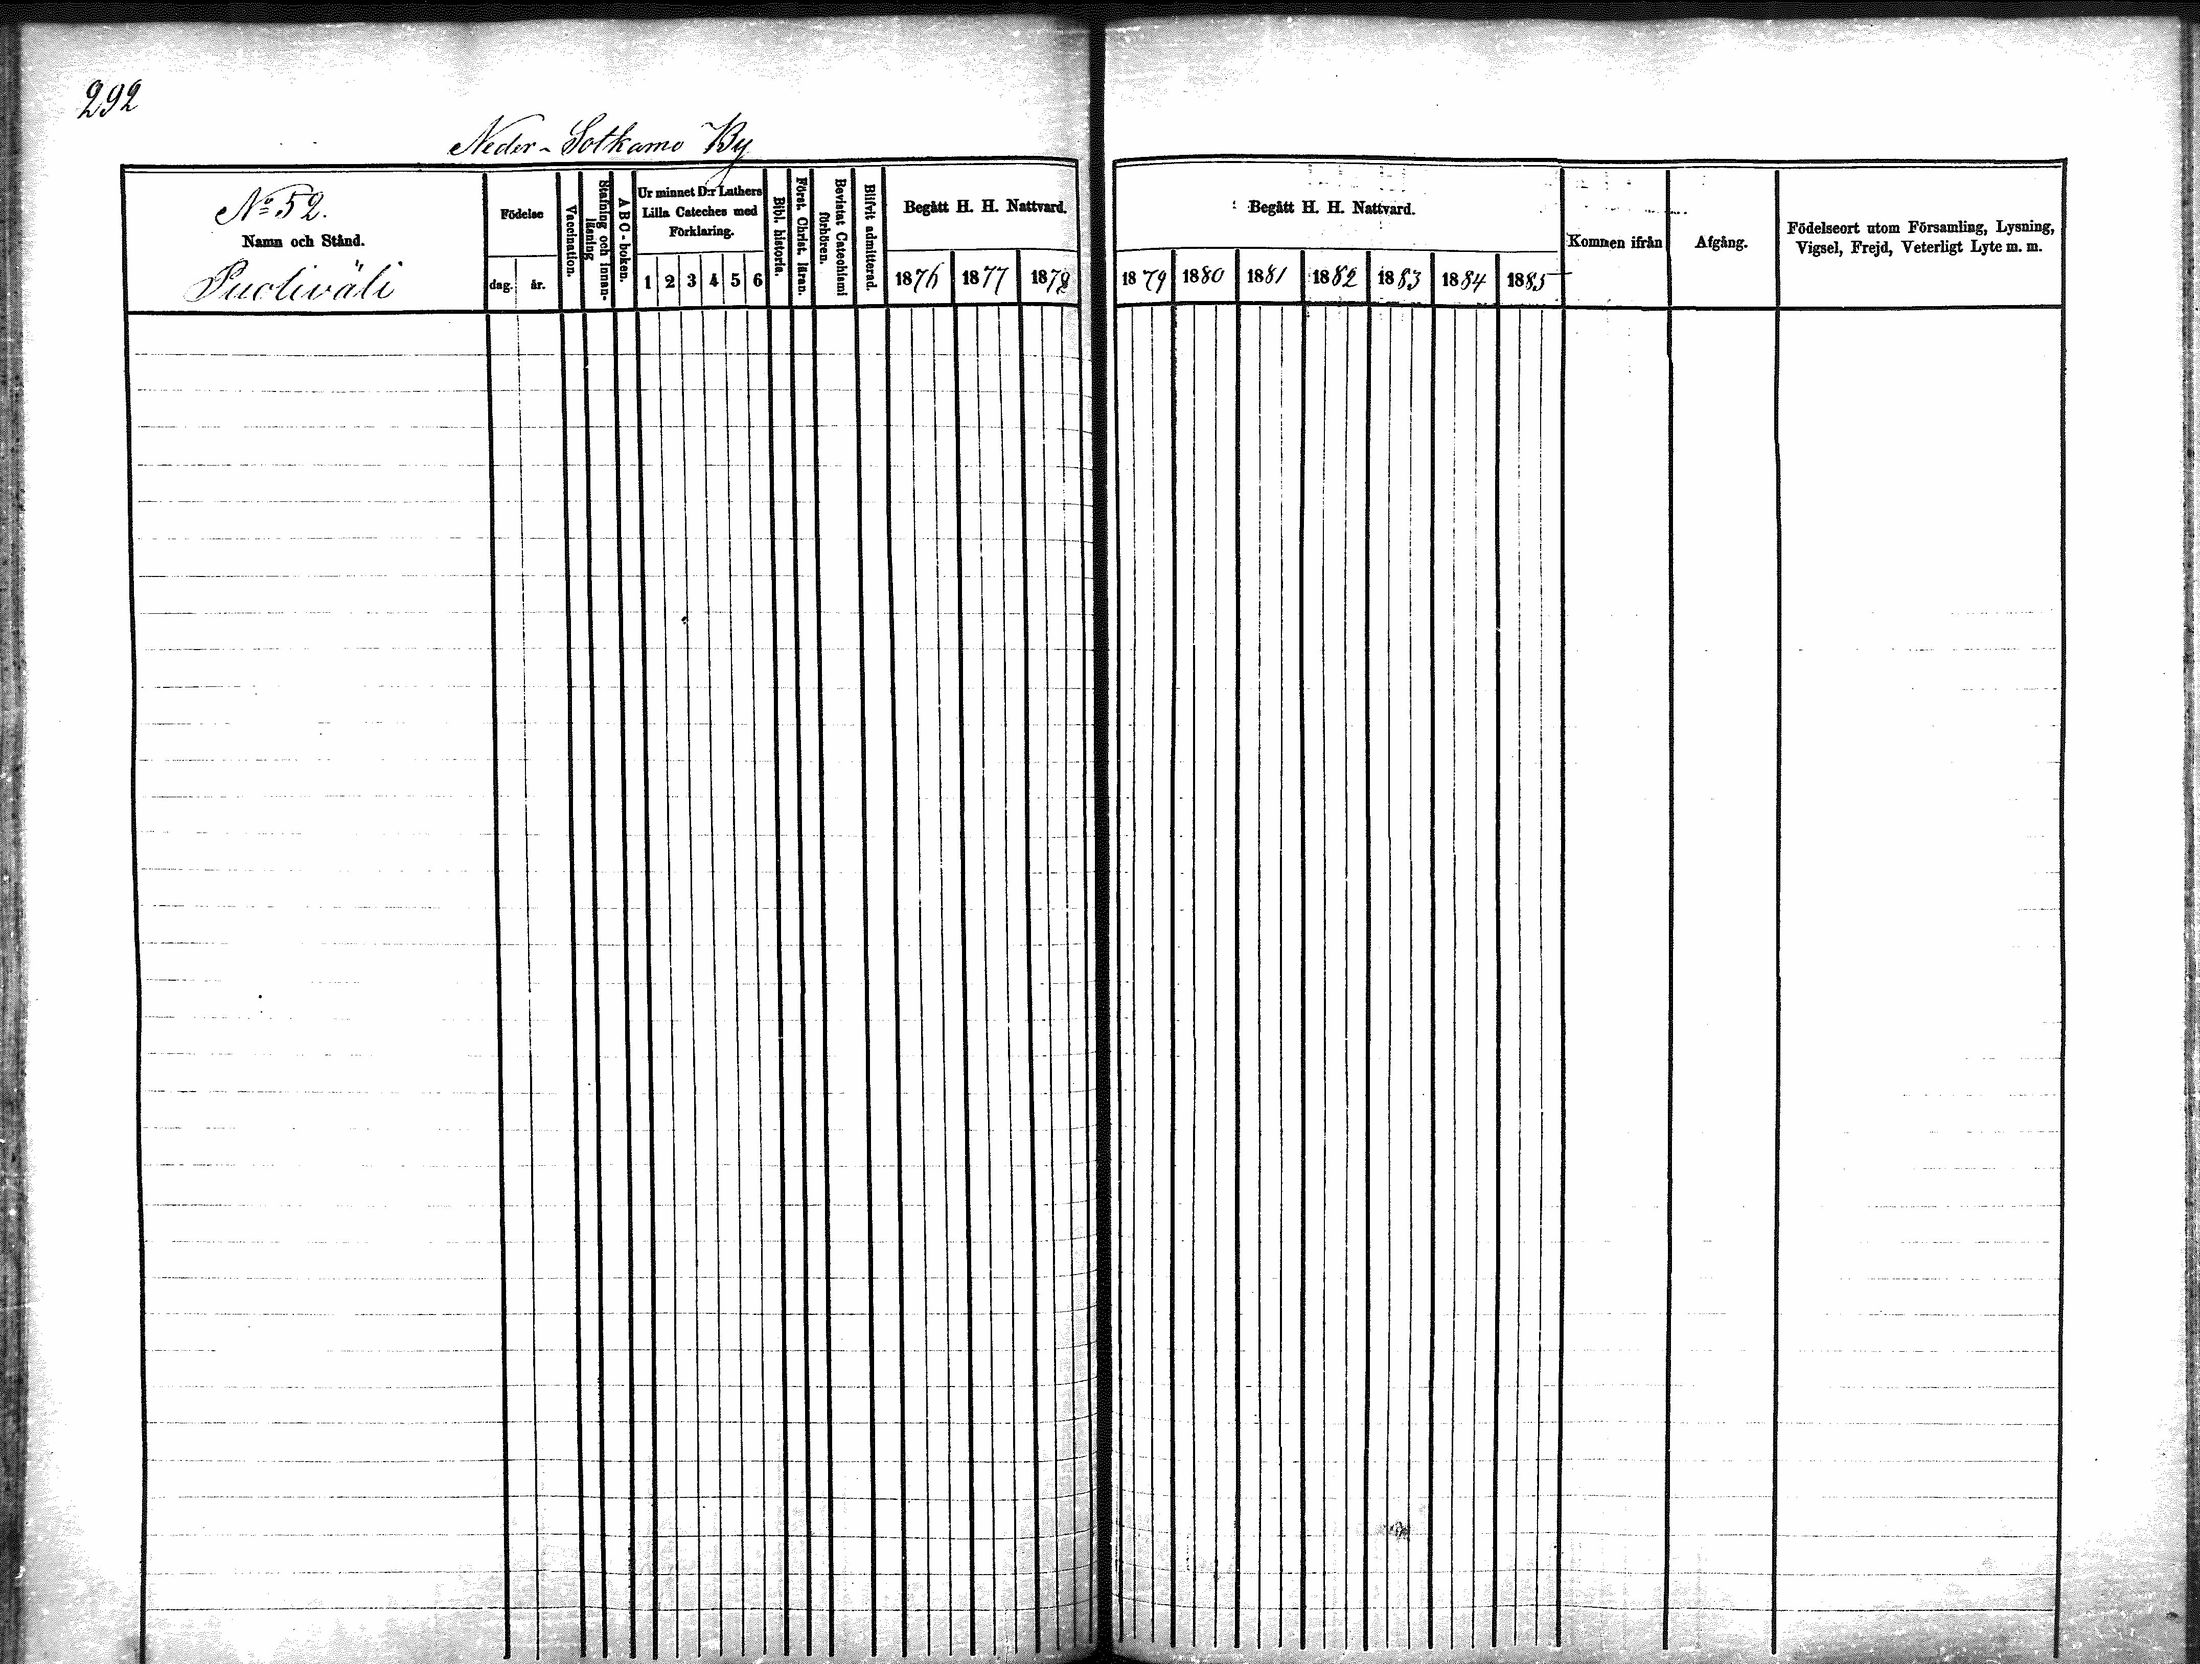 292
Neder-Sotkamo By
No 52.
Namn och Stånd.
Puoliväli
Födelse
dag. år.
Vaccination.
Stafning och innan-
läsning
ABC-boken.
Ur minnet D:r Luthers
Lilla Cateches med
Förklaring.
1 2 3 4 5 6
Bibl. historia.
Först. Christ. läran.
Bevistat Catechismi
förhören.
Blifvit admitterad.
Begått H. H. Nattvard.
1876 1877 1878
Begått H. H. Nattvard.
1879 1880 1881 1882 1883 1884 1885
Kommen ifrån
Afgång.
Födelseort utom Församling, Lysning,
Vigsel, Frejd, Veterligt Lyte m. m.